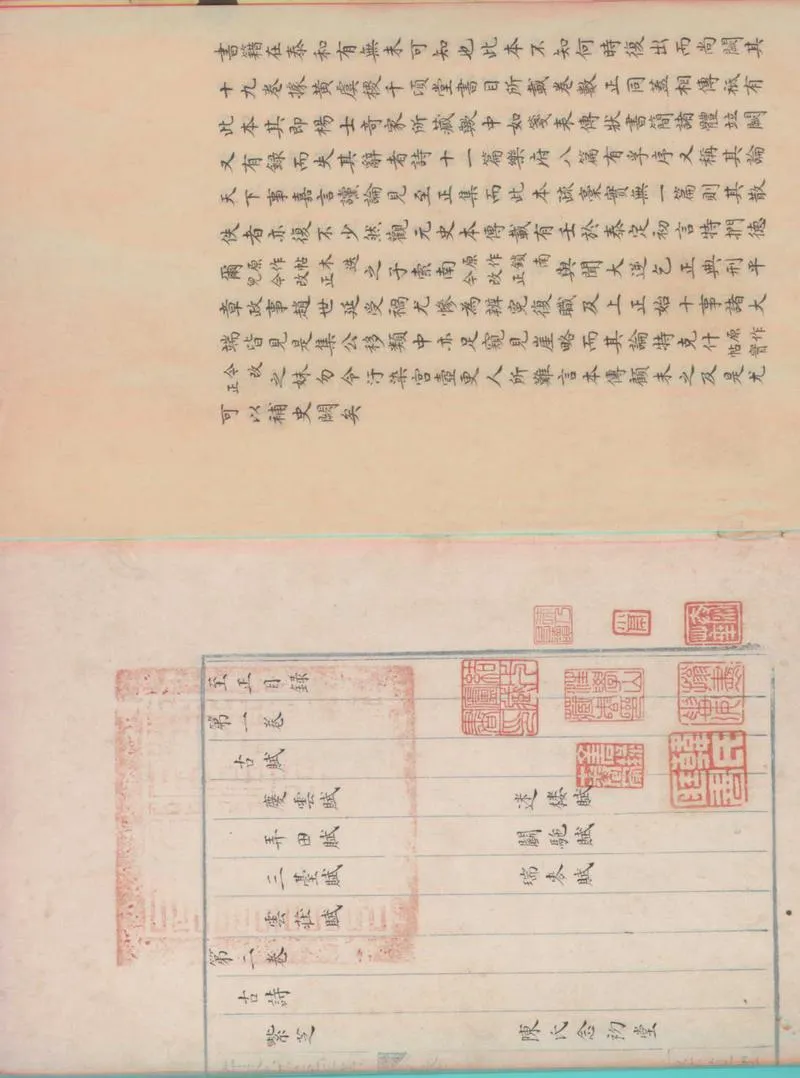 書籍在泰和有無未可知也此本不知何時復出而尚闕其
十九卷據黃虞稷千頃堂書目所載卷數正同蓋相傳祗有
此本其即楊士奇家所藏歟中如箋表傳狀書簡諸體竝闕
又有錄而失其辭者詩十一篇樂府八篇有孚序又稱其論
天下事嘉言讜論見至正集而此本疏藁實無一篇則其散
佚者亦復不少然觀元史本傳載有壬於泰定初言特捫德
爾原作帖木迭兒今改正之子索南原作鎖南今改正與聞大逆乞正典刑平
章政事趙世延受禍尤慘為辨冤復職及上正始十事諸大
端皆見是集公移類中亦足窺見崖略而其論特克什原作帖實
今改正之妹勿令汙染宮壼更人所難言本傳顧未之及是尤
可以補史闕矣
至正目錄
第一卷
古賦
慶雲賦 迷樓賦
弄田賦
三臺賦 瑞麥賦
雲莊賦
第二卷
古詩
紫芝 陳氏念初堂